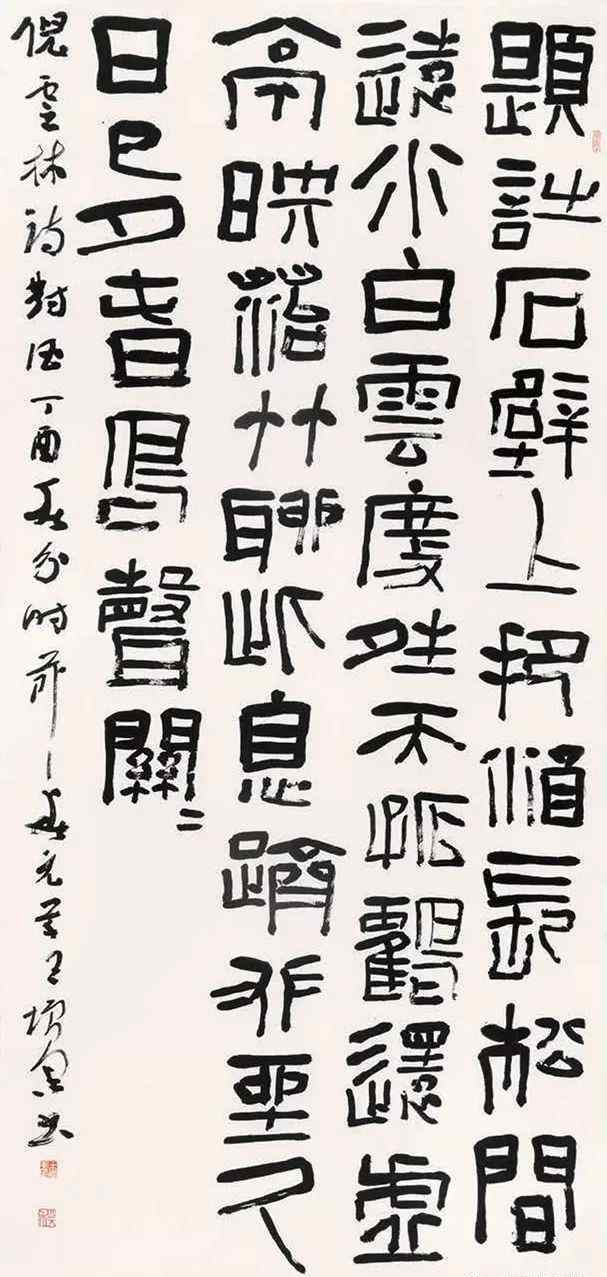 題詩石壁上把酒長松間
遠水白雲度晴天孤鶴還虛
亭映苔竹聊此息躋攀坐久
日已夕春鳥聲關〻
倪雲林詩對酒丁酉春分時節王書